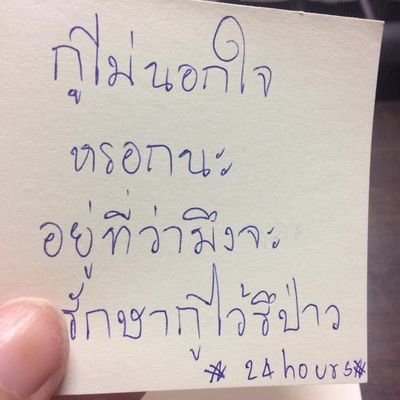 กูไม่นอกใจ
หรอกนะ
อยู่ที่ว่ามึงจะ
รักษากูไว้รึป่าว
☆ 24 hours ☆